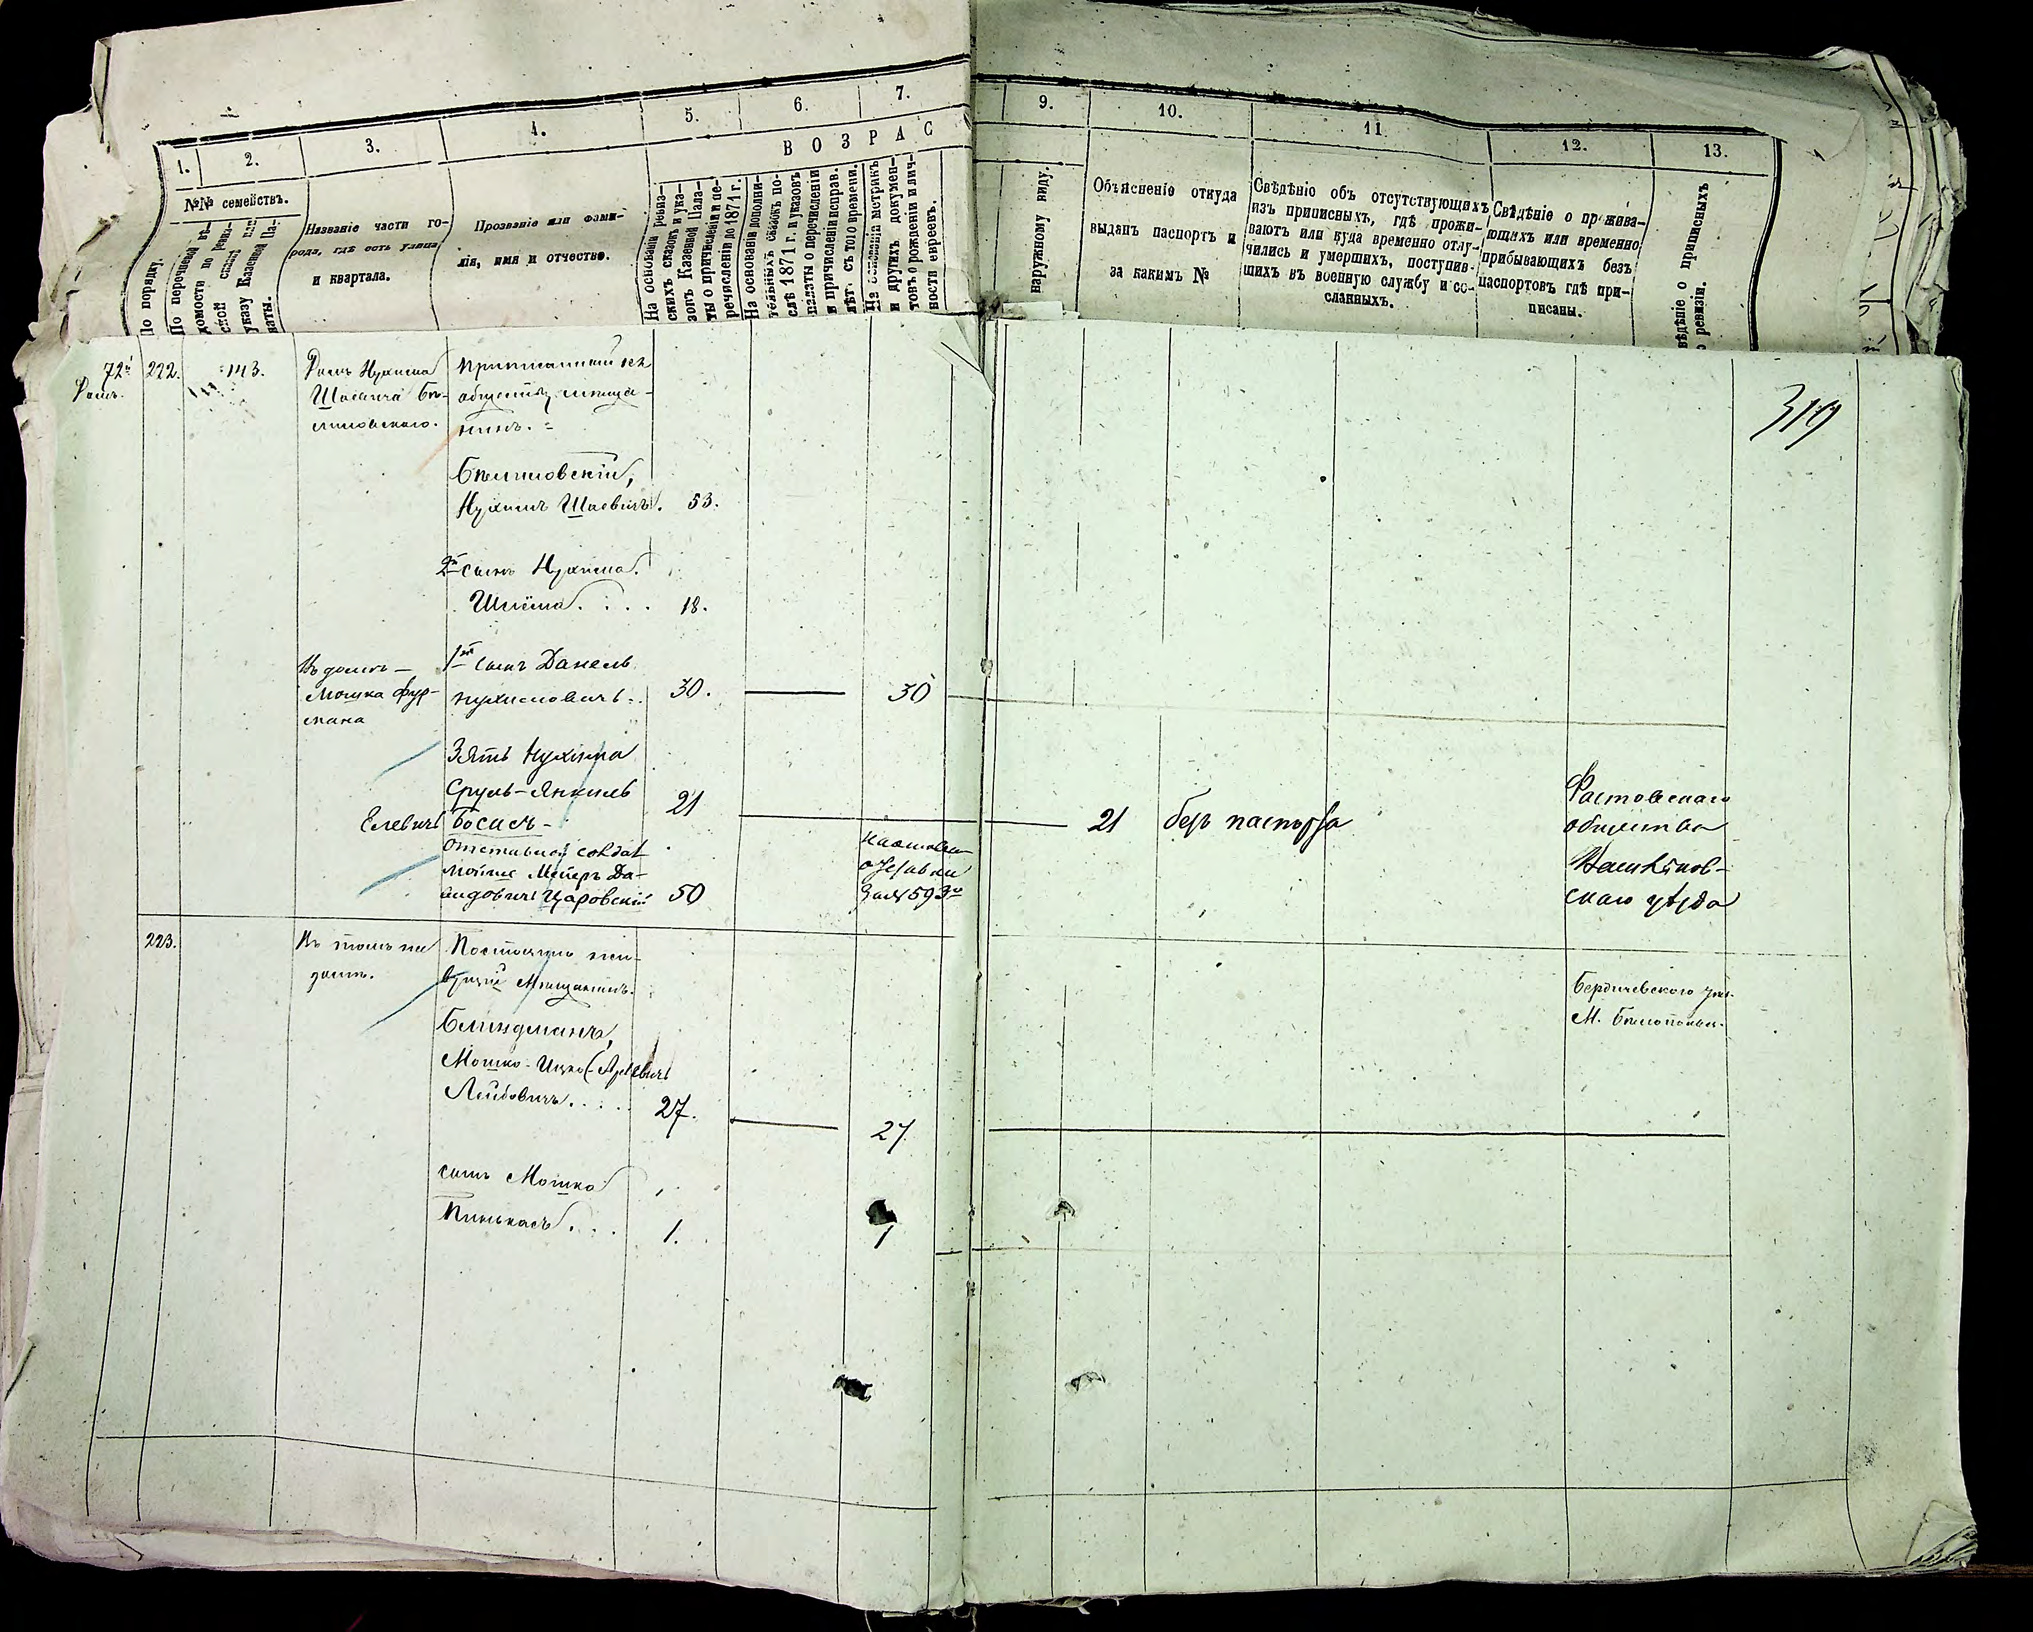 1.
2.
3.
4.
5.
6.
7.
ВОЗРАС
№№ семействъ.
По порядку.
По перечневой вѣ-
домости по ревиз-
ской
указу Казенной Па-
латы.
Названіе части го-
рода, гдѣ есть улица
и квартала.
Прозваніе или фами-
лія, имя и отчество.
На основаніи ревиз-
скихъ сказокъ и ука-
зовъ Казенной Пала-
ты о причисленіи и пе-
речисленіи до 1871 г.
На основаніи дополни-
тельныхъ сказокъ по-
слѣ 1871 г. и указовъ
палаты о перечисленіи
и причисленіи исправ.
лѣт. съ того времени.
На основаніи метрикъ
и другихъ докумен-
товъ о рожденіи и лич-
ности евреевъ.
9.
10.
11.
12.
13.
наружному виду.
Объясненіе откуда
выданъ паспортъ и
за какимъ №
Свѣдѣніе объ отсутствующихъ
изъ приписныхъ, гдѣ прожи-
ваютъ или куда временно отлу-
чились и умершихъ, поступив-
шихъ въ военную службу и со-
сланныхъ.
Свѣдѣніе о прожива-
ющихъ или временно
прибывающихъ безъ
паспортовъ гдѣ при-
писаны.
вѣдѣніе о приписныхъ
ревизіи.
319
72й
Домъ.
222.
143.
Домъ Нухима
Шаевича Бѣ-
лиловскаго.
Приписанный къ
обществу мѣща-
нинъ.
Бѣлиловскій,
Нухимъ Шаевичъ. 53.
2й сынъ Нухима
Шлёма . . . . 18.
Въ домѣ
Мошка Фур-
мана
1й сынъ Данель
Нухимовичъ. 30. — 30
Зять Нухима
Сруль-Янкель 21
Елевичъ Босисъ
21 безъ паспорта
Фастовскаго
общества
Васильков-
скаго уѣзда
Отставной солдат
Мойше Мееръ Да-
видовичъ Царовскій 50
за № 593
223.
Въ томъ же
домѣ.
Постоянно жи-
вущій Мѣщанинъ.
Блиндманъ,
Мошко-Ицко (Арьевичъ
Лейбовичъ. . . . . 27. — 27
Бердичевского уѣз.
М. Бѣлополья.
сынъ Мошка
Пинькасъ . . . 1. 1